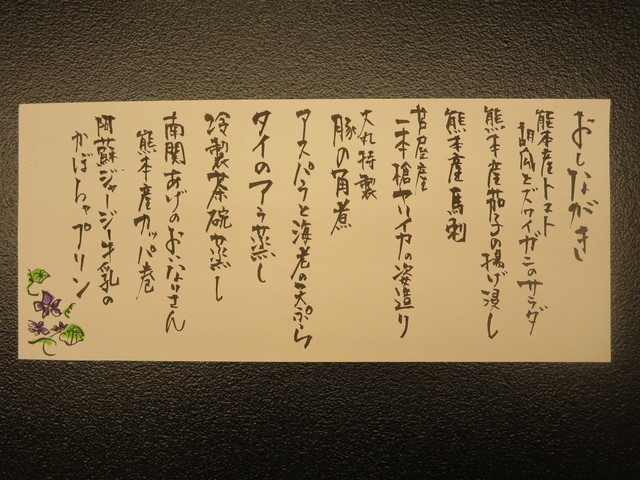 おしながき
熊本産トマト
胡瓜とズワイガニのサラダ
熊本産茄子の揚げ浸し
熊本産馬刺
芦屋産
一本槍ヤリイカの姿造り
大丸特製
豚の角煮
アスパラと海老の天ぷら
タイのアラ蒸し
冷製茶碗蒸し
南関あげのおいなりさん
熊本産カッパ巻
阿蘇ジャージー牛乳の
かぼちゃプリン